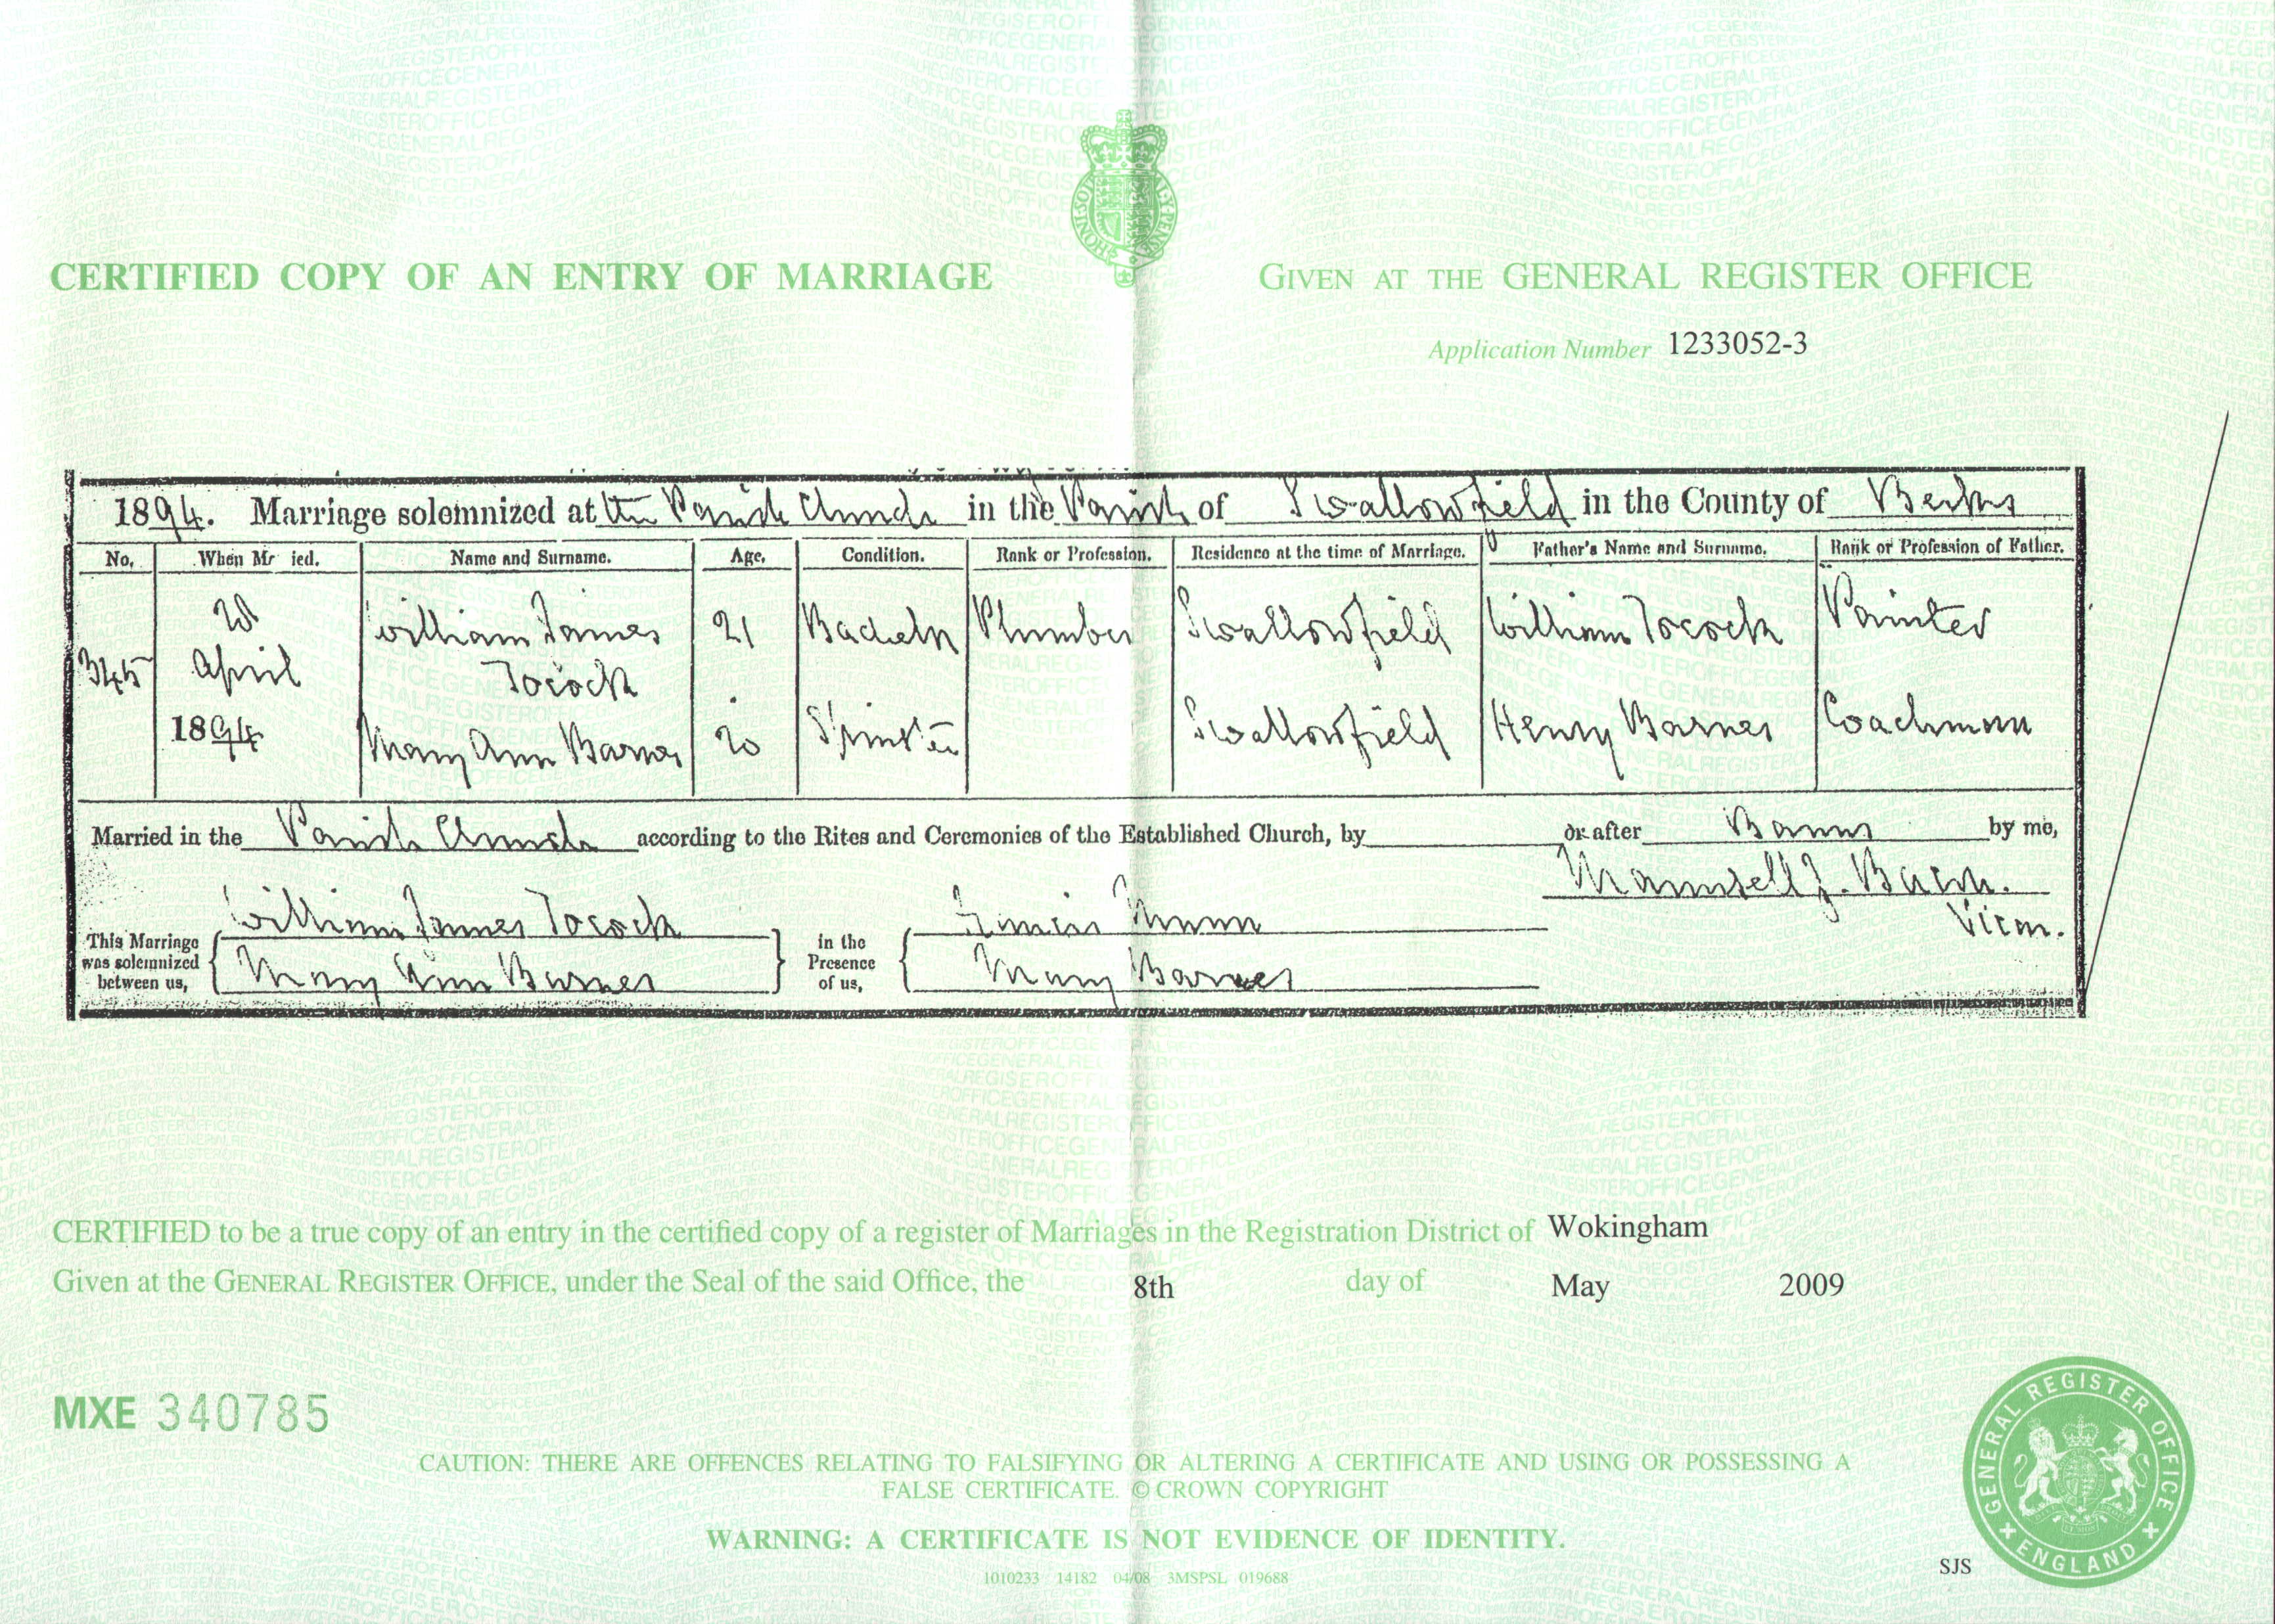 CERTIFIED COPY OF AN ENTRY OF MARRIAGE
GIVEN AT THE GENERAL REGISTER OFFICE
Application Number 1233052-3
1894. Marriage solemnized at the Parish Church in the Parish of Swallowfield in the County of Berks
No. When Mr ied. Name and Surname. Age. Condition. Rank or Profession. Residence at the time of Marriage. Father's Name and Surname. Rank or Profession of Father.
William James 21 Bachelor Plumber Swallowfield William Tocock Painter
345 April Tocock
1894 Mary Ann Barnes 20 Spinster Swallowfield Henry Barnes Coachman
Married in the Parish Church according to the Rites and Ceremonies of the Established Church, by or after Banns by me,
Vicar.
This Marriage was solemnized between us,
William James Tocock
Mary Ann Barnes
in the Presence of us,
Mary Barnes
CERTIFIED to be a true copy of an entry in the certified copy of a register of Marriages in the Registration District of Wokingham
Given at the GENERAL REGISTER OFFICE, under the Seal of the said Office, the 8th day of May 2009
MXE 340785
CAUTION: THERE ARE OFFENCES RELATING TO FALSIFYING OR ALTERING A CERTIFICATE AND USING OR POSSESSING A
FALSE CERTIFICATE. © CROWN COPYRIGHT
WARNING: A CERTIFICATE IS NOT EVIDENCE OF IDENTITY.
1010233 14182 04/08 3MSPSL 019688
SJS
GENERAL REGISTER OFFICE
ENGLAND